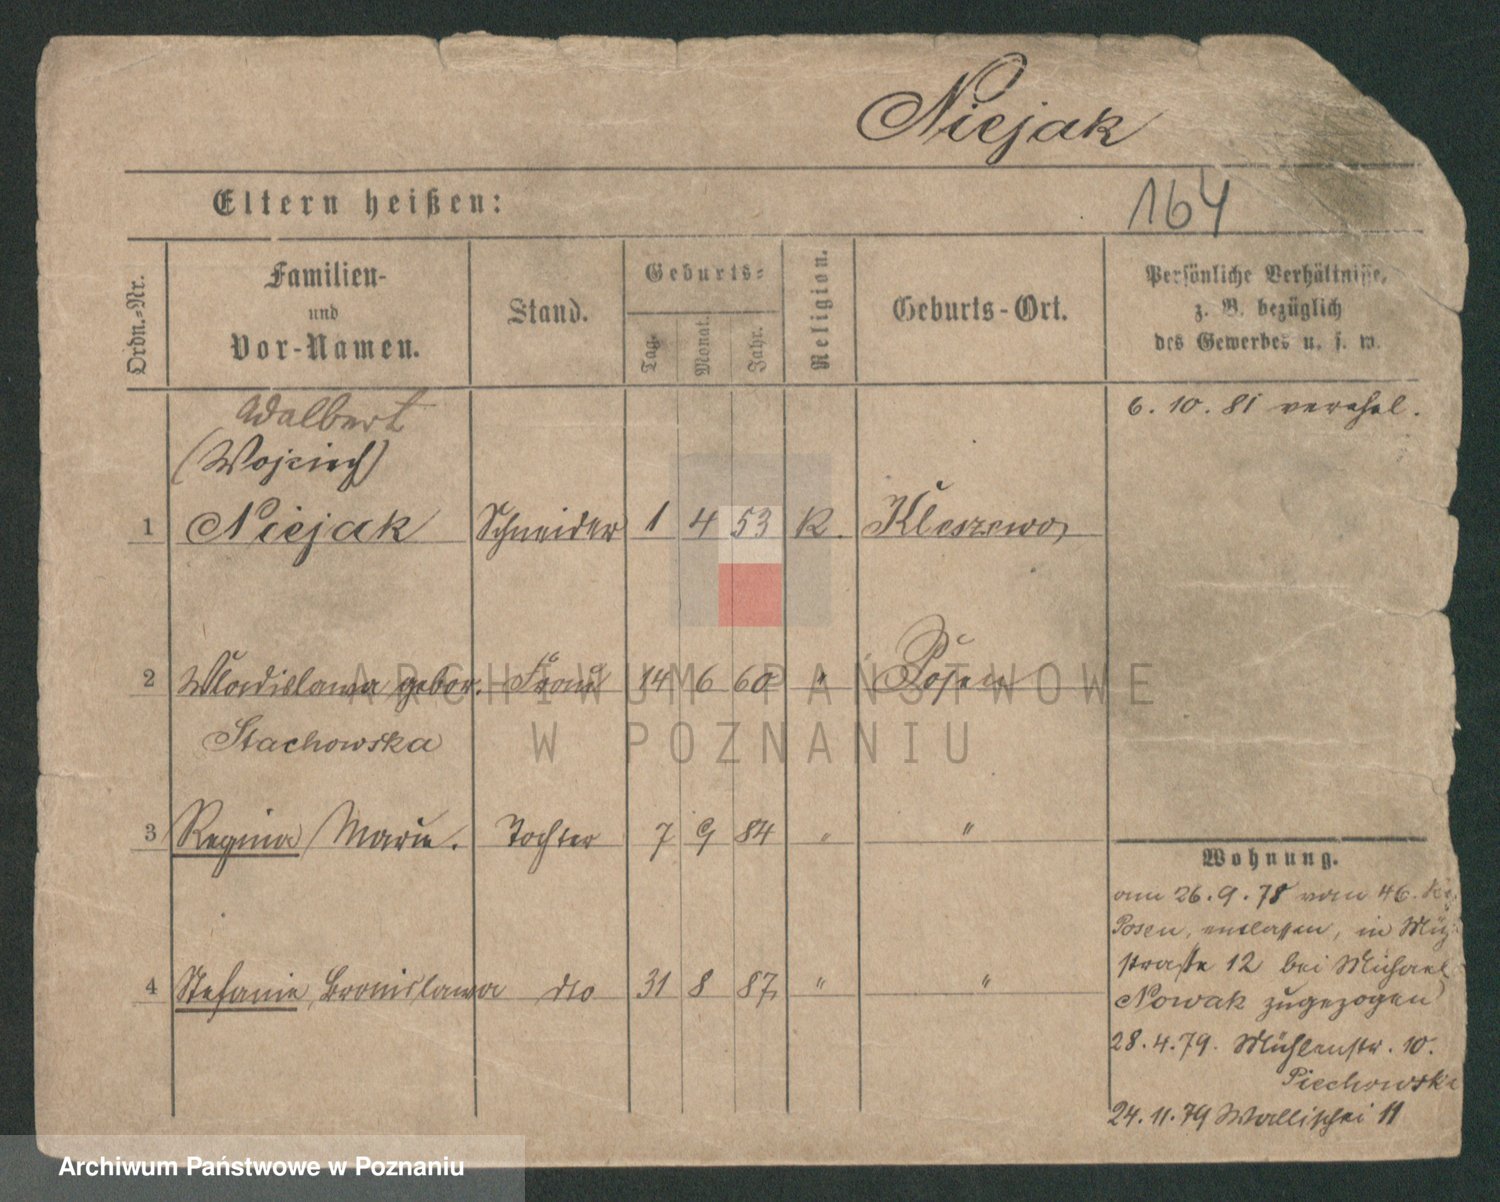 Niejak
Eltern heißen:
164
Ordn.-Nr.
Familien-
und
Vor-Namen.
Stand.
Geburts-
Tag.
Monat.
Jahr.
Religion.
Geburts-Ort.
Persönliche Verhältnisse,
z. B. bezüglich
des Gewerbes u. s. w.
6. 10. 81 verehel.
Adalbert
(Wojciech)
1 Niejak Schneider 1 4 53 K. Kleszewo
2 Wladislawa gebor. Frau 14 6 60 " Posen
Stachowska
3 Regina Marie. Tochter 7 9 84 " "
4 Stefanie Bronislawa dto 31 8 87 " "
Wohnung.
am 26. 9. 78 vom 46.
Posen, entlassen, in
straße 12 bei Michael
Nowak zugezogen
28. 4. 79. Mühlenstr. 10.
Piechowska
24. 11. 79 Wallischei 11
ARCHIWUM PAŃSTWOWE
W POZNANIU
Archiwum Państwowe w Poznaniu